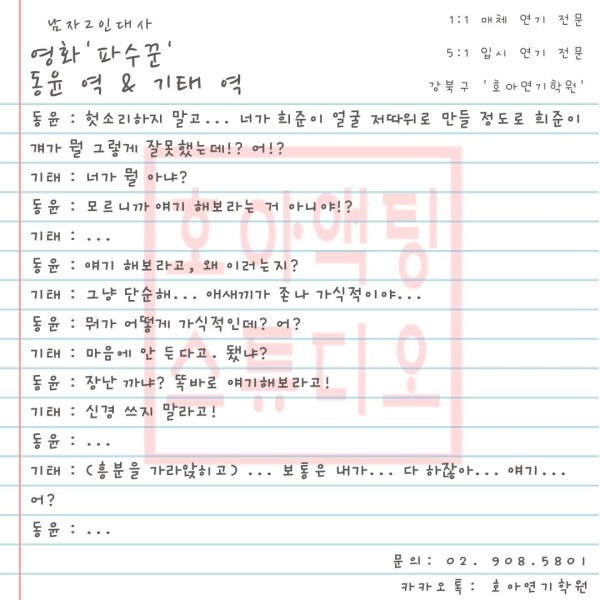 남자2인대사
영화'파수꾼'
동윤 역 & 기태 역
1:1 매체 연기 전문
5:1 입시 연기 전문
강북구 '호아연기학원'
동윤 : 헛소리하지 말고... 너가 희준이 얼굴 저따위로 만들 정도로 희준이
걔가 뭘 그렇게 잘못했는데!? 어!?
기태 : 너가 뭘 아냐?
동윤 : 모르니까 얘기 해보라는 거 아니야!?
기태 : ...
동윤 : 얘기 해보라고, 왜 이러는지?
기태 : 그냥 단순해... 애새끼가 존나 가식적이야...
동윤 : 뭐가 어떻게 가식적인데? 어?
기태 : 마음에 안 든다고. 됐냐?
동윤 : 장난 까냐? 똑바로 얘기해보라고!
기태 : 신경 쓰지 말라고!
동윤 : ...
기태 : (흥분을 가라앉히고) ... 보통은 내가... 다 하잖아... 얘기...
어?
동윤 : ...
호아액팅
스튜디오
문의: 02. 908.5801
카카오톡: 호아연기학원